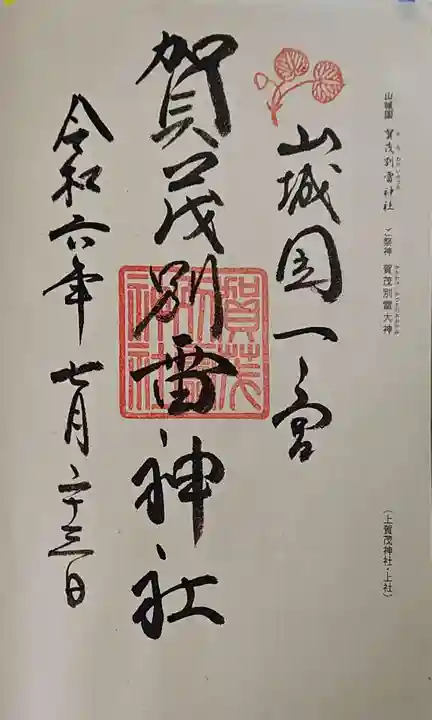 山城國 賀茂別雷神社 ご祭神 賀茂別雷大神
(上賀茂神社・上社)
山城国一之宮
賀茂別雷神社
賀茂別雷神社
令和六年 七月二十三日